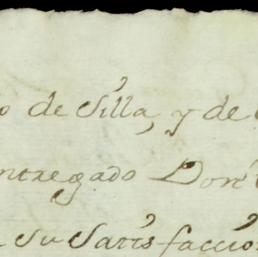 o de Silla, y de
ntregado Don
su Satisfaccio